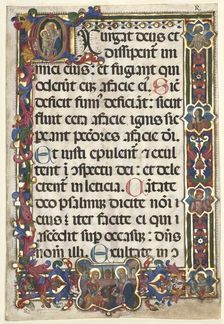 Exurgat deus et
dissipent̄ im
mici eius: et fugant̄ qui
oderunt eum a facie eī. Sic̄
deficit fum̄ deficiāt: sicut
fluit cera a facie ignis sic̄
pereant pc̄c̄ores a facie dei
Et iusti epulent̄ et
exultent in cōspectu dei: et
delectent̄ in leticia. Cātate
deo psalmū dicite noī
eius: iter facite ei qui
ascendit sup occasū: dn̄s
nom̄ illi. Exultate in ɔ